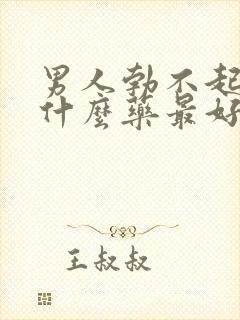 男人勃不起
什麼藥最好
王叔叔